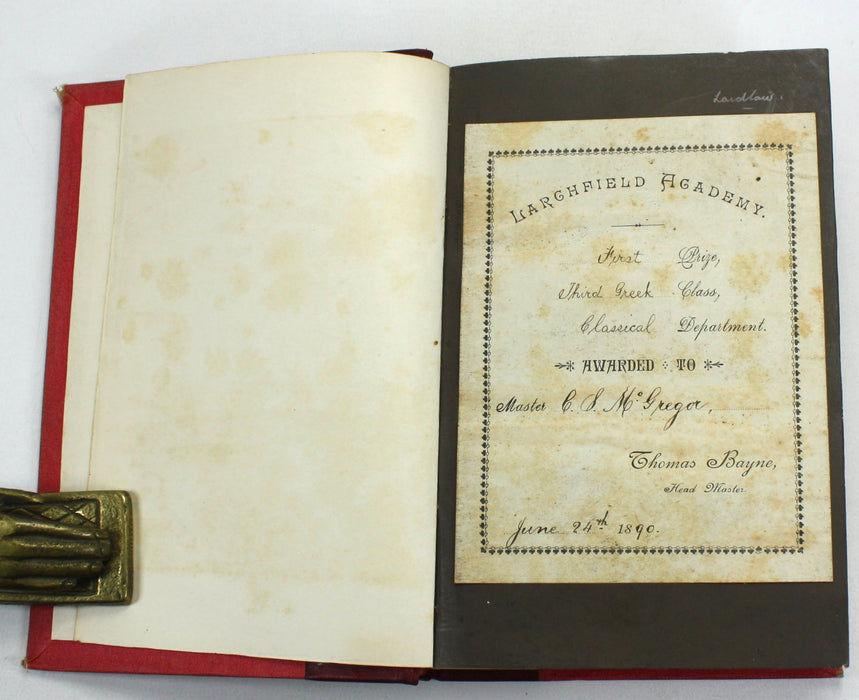 Laidlaw.
LARCHFIELD ACADEMY.
First Prize,
Third Greek Class,
Classical Department.
AWARDED TO
Master C. S. McGregor,
Thomas Bayne,
Head Master.
June 24th 1890.